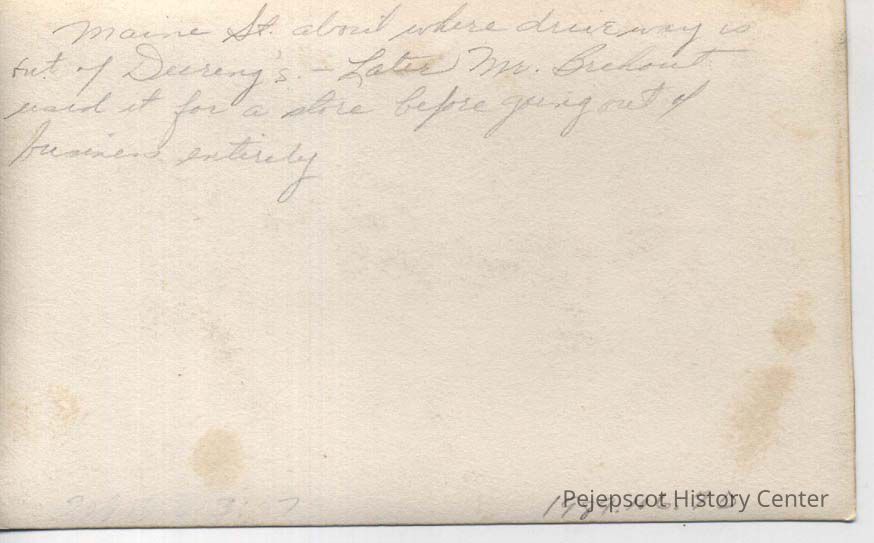 Maine St. about where driveway is
out of Deering's. – Later Mr. Brehaut
used it for a store before going out of
business entirely
Pejepscot History Center